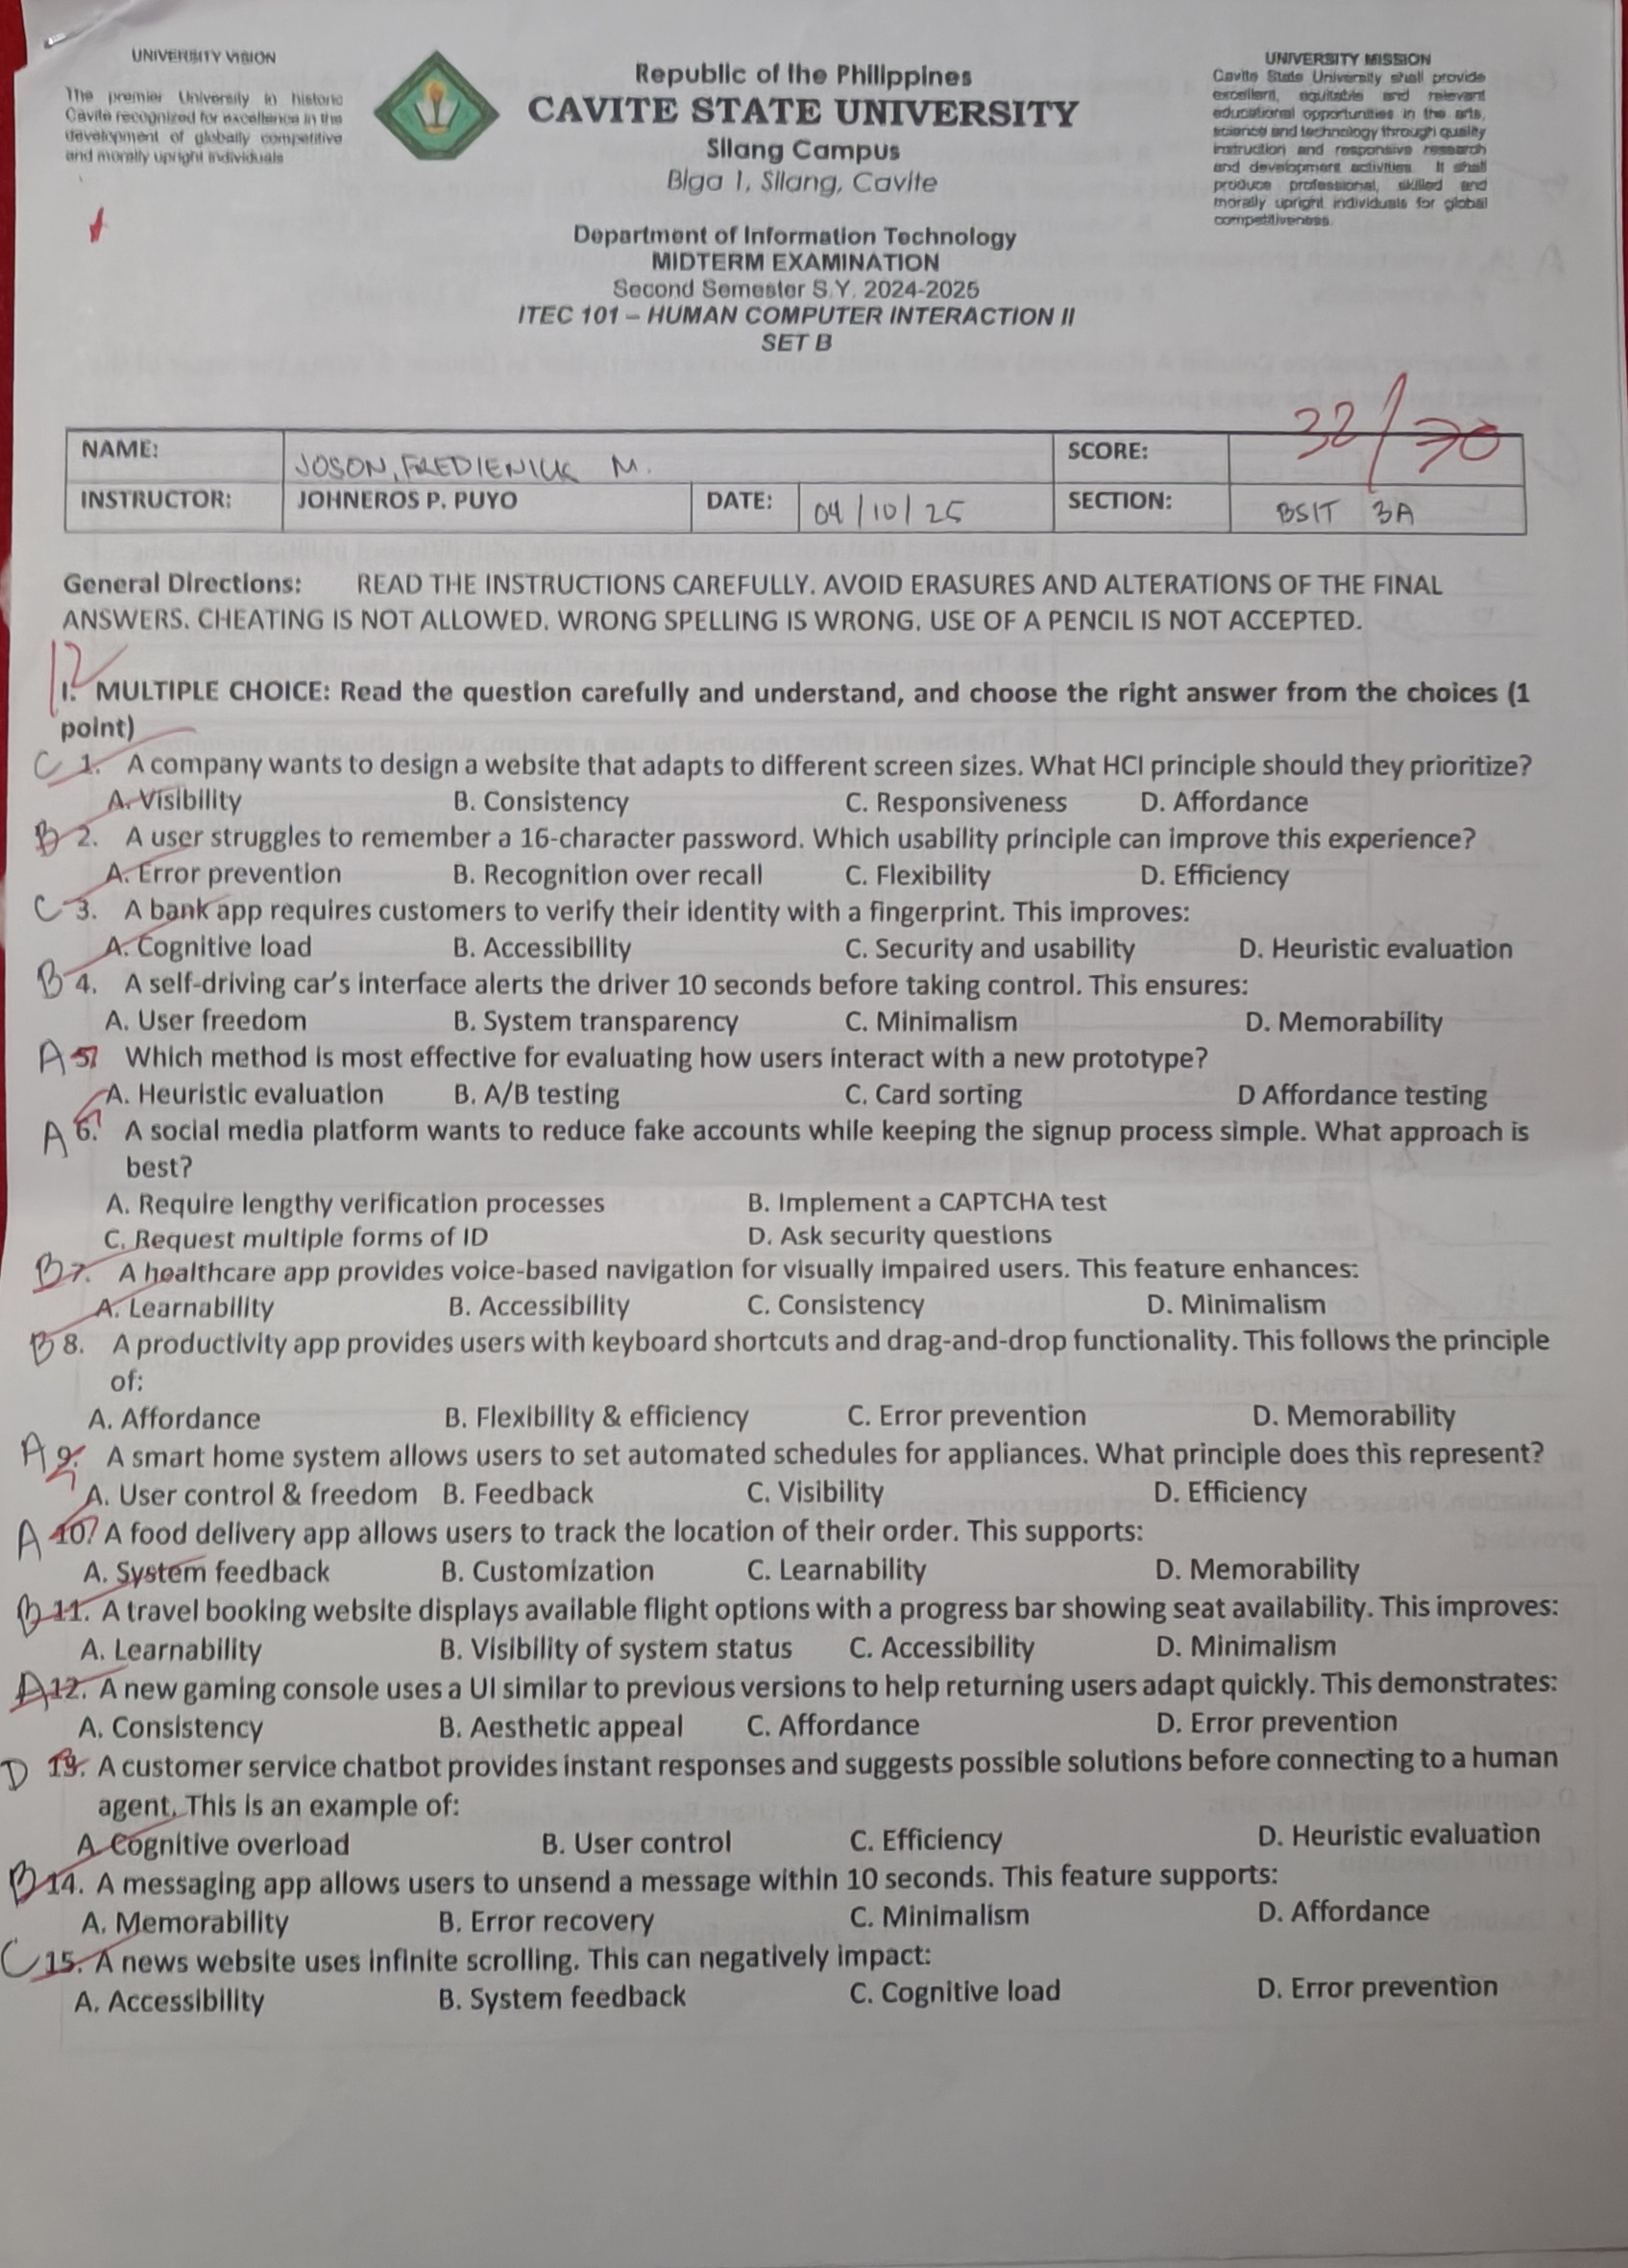 UNIVERSITY VISION
The premier University in historic
Cavite recognized for excellence in the
development of globally competitive
and morally upright individuals
Republic of the Philippines
CAVITE STATE UNIVERSITY
Silang Campus
Biga 1, Silang, Cavite
UNIVERSITY MISSION
Cavite State University shall provide
excellent, equitable and relevant
educational opportunities in the arts,
science and technology through quality
instruction and responsive research
and development activities. It shall
produce professional, skilled and
morally upright individuals for global
competitiveness.
Department of Information Technology
MIDTERM EXAMINATION
Second Semester S.Y. 2024-2025
ITEC 101 – HUMAN COMPUTER INTERACTION II
SET B
NAME: JOSON, FREDIENICK M. SCORE: 32/70
INSTRUCTOR: JOHNEROS P. PUYO DATE: 04/10/25 SECTION: BSIT 3A
General Directions: READ THE INSTRUCTIONS CAREFULLY. AVOID ERASURES AND ALTERATIONS OF THE FINAL
ANSWERS. CHEATING IS NOT ALLOWED. WRONG SPELLING IS WRONG. USE OF A PENCIL IS NOT ACCEPTED.
12
I. MULTIPLE CHOICE: Read the question carefully and understand, and choose the right answer from the choices (1
point)
C 1. A company wants to design a website that adapts to different screen sizes. What HCI principle should they prioritize?
A. Visibility B. Consistency C. Responsiveness D. Affordance
B 2. A user struggles to remember a 16-character password. Which usability principle can improve this experience?
A. Error prevention B. Recognition over recall C. Flexibility D. Efficiency
C 3. A bank app requires customers to verify their identity with a fingerprint. This improves:
A. Cognitive load B. Accessibility C. Security and usability D. Heuristic evaluation
B 4. A self-driving car's interface alerts the driver 10 seconds before taking control. This ensures:
A. User freedom B. System transparency C. Minimalism D. Memorability
A 5. Which method is most effective for evaluating how users interact with a new prototype?
A. Heuristic evaluation B. A/B testing C. Card sorting D Affordance testing
A 6. A social media platform wants to reduce fake accounts while keeping the signup process simple. What approach is
best?
A. Require lengthy verification processes B. Implement a CAPTCHA test
C. Request multiple forms of ID D. Ask security questions
B 7. A healthcare app provides voice-based navigation for visually impaired users. This feature enhances:
A. Learnability B. Accessibility C. Consistency D. Minimalism
B 8. A productivity app provides users with keyboard shortcuts and drag-and-drop functionality. This follows the principle
of:
A. Affordance B. Flexibility & efficiency C. Error prevention D. Memorability
A 9. A smart home system allows users to set automated schedules for appliances. What principle does this represent?
A. User control & freedom B. Feedback C. Visibility D. Efficiency
A 10. A food delivery app allows users to track the location of their order. This supports:
A. System feedback B. Customization C. Learnability D. Memorability
B 11. A travel booking website displays available flight options with a progress bar showing seat availability. This improves:
A. Learnability B. Visibility of system status C. Accessibility D. Minimalism
A 12. A new gaming console uses a UI similar to previous versions to help returning users adapt quickly. This demonstrates:
A. Consistency B. Aesthetic appeal C. Affordance D. Error prevention
D 13. A customer service chatbot provides instant responses and suggests possible solutions before connecting to a human
agent. This is an example of:
A. Cognitive overload B. User control C. Efficiency D. Heuristic evaluation
B 14. A messaging app allows users to unsend a message within 10 seconds. This feature supports:
A. Memorability B. Error recovery C. Minimalism D. Affordance
C 15. A news website uses infinite scrolling. This can negatively impact:
A. Accessibility B. System feedback C. Cognitive load D. Error prevention